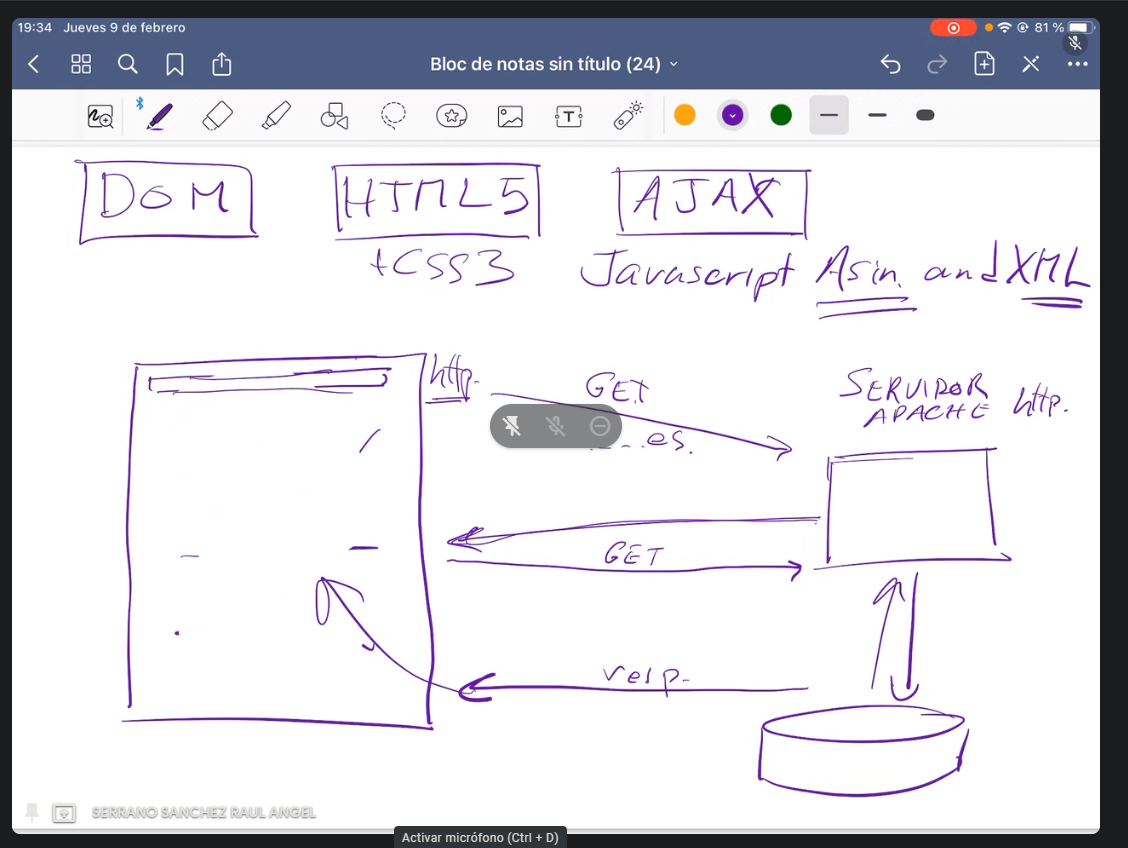 19:34 Jueves 9 de febrero
81 %
Bloc de notas sin título (24)
T
DOM
HTML5
AJAX
+CSS3
Javascript Asin. and XML
http.
GET
SERVIDOR
APACHE http.
es.
GET
resp.
SERRANO SANCHEZ RAUL ANGEL
Activar micrófono (Ctrl + D)